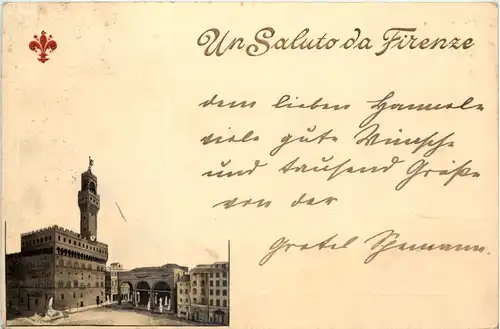 Un Saluto da Firenze
dem lieben Hannele
viele gute Wünsche
und tausend Grüße
von der
Gretel Spemann.